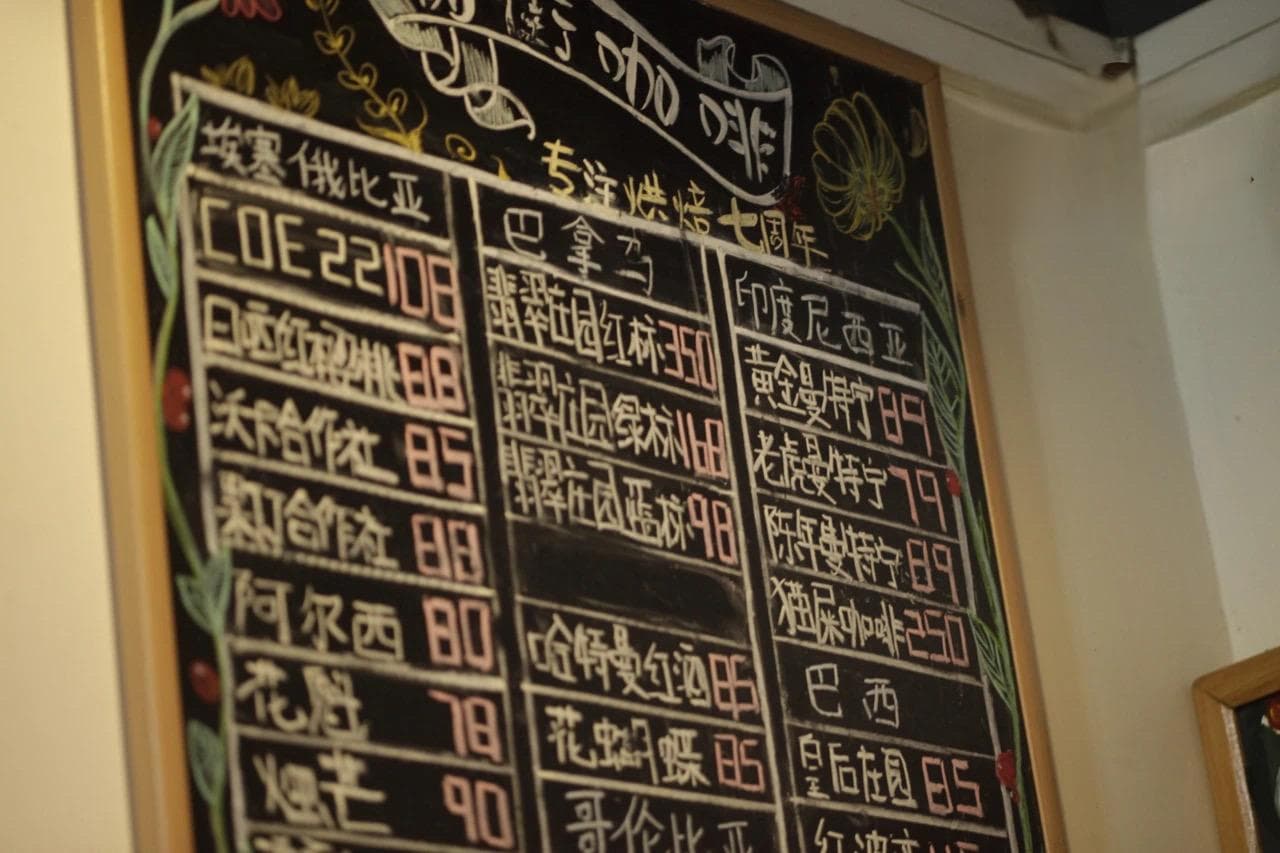 街咖啡
专注烘焙七周年
埃塞俄比亚
COE 22 108
日晒红樱桃 88
沃卡合作社 85
果丁合作社 88
阿尔西 80
花魁 78
90
巴拿马
翡翠庄园红标 350
翡翠庄园绿标 168
翡翠庄园蓝标 98
哈特曼红酒 85
花蝴蝶 85
哥伦比亚
印度尼西亚
黄金曼特宁 89
老虎曼特宁 79
陈年曼特宁 89
猫屎咖啡 250
巴西
皇后庄园 85
红波